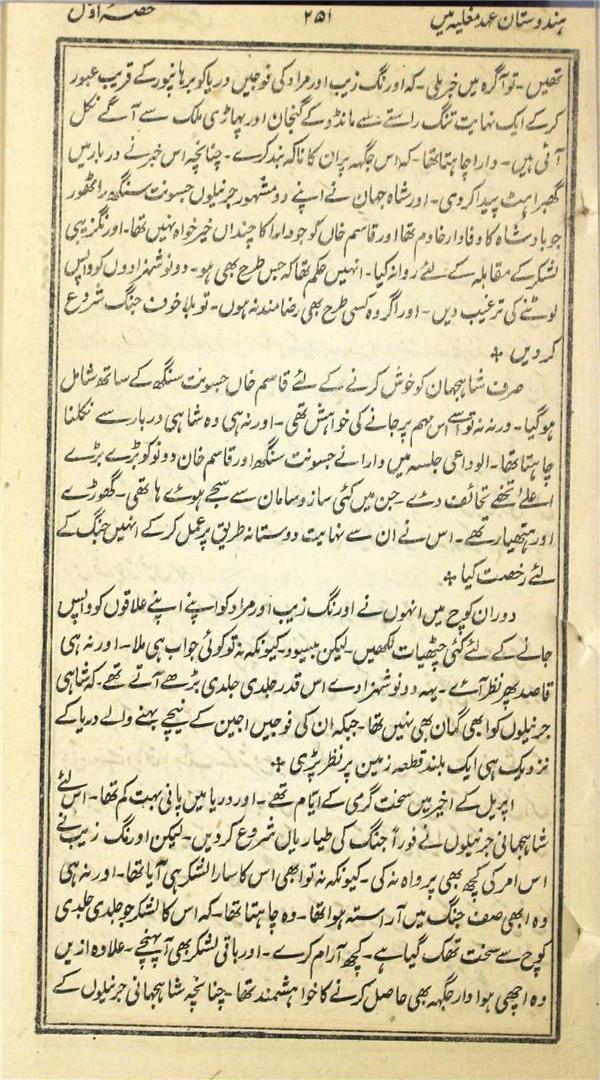 ہندوستان عہد مغلیہ میں ۲۵۱ حصہ اول
تھیں۔ تو آگرہ میں خبر ملی۔ کہ اورنگ زیب اور مراد کی فوجیں دریا کو برہانپور کے قریب عبور
کر کے ایک نہایت تنگ راستے سے مانڈو کے گنجان اور پہاڑی ملک سے آگے نکل
آئی ہیں۔ دارا چاہتا تھا۔ کہ اس جگہ پر ان کا ناکہ بند کرے۔ چنانچہ اس خبر نے دربار میں
گھبراہٹ پیدا کر دی۔ اور شاہ جہان نے اپنے دو مشہور جرنیلوں جسونت سنگھ راٹھور
جو بادشاہ کا وفادار خادم تھا اور قاسم خاں کو جو دارا کا چنداں خیر خواہ نہیں تھا۔ اورنگزیبی
لشکر کے مقابلہ کے لئے روانہ کیا۔ انہیں حکم تھا کہ جس طرح بھی ہو۔ دونو شہزادوں کو واپس
لوٹنے کی ترغیب دیں۔ اور اگر وہ کسی طرح بھی رضامند نہ ہوں۔ تو بلا خوف جنگ شروع
کر دیں ٭
صرف شاہجہان کو خوش کرنے کے لئے قاسم خاں جسونت سنگھ کے ساتھ شامل
ہو گیا۔ ورنہ نہ تو اسے اس مہم پر جانے کی خواہش تھی۔ اور نہ ہی وہ شاہی دربار سے نکلنا
چاہتا تھا۔ الوداعی جلسہ میں دارا نے جسونت سنگھ اور قاسم خان دونو کو بڑے بڑے
اعلیٰ تحفے تحائف دئے۔ جن میں کئی ساز و سامان سے سجے ہوئے ہاتھی۔ گھوڑے
اور ہتھیار تھے۔ اس نے ان سے نہایت دوستانہ طریق پر عمل کر کے انہیں جنگ کے
لئے رخصت کیا ٭
دوران کوچ میں انہوں نے اورنگ زیب اور مراد کو اپنے اپنے علاقوں کو واپس
جانے کے لئے کئی چٹھیات لکھیں۔ لیکن بیسود۔ کیونکہ نہ تو کوئی جواب ہی ملا۔ اور نہ ہی
قاصد پھر نظر آئے۔ یہہ دونو شہزادے اس قدر جلدی جلدی بڑھے آتے تھے۔ کہ شاہی
جرنیلوں کو ابھی گمان بھی نہیں تھا۔ جبکہ ان کی فوجیں اجین کے نیچے بہنے والے دریا کے
نزدیک ہی ایک بلند قطعہ زمین پر نظر پڑی ٭
اپریل کے اخیر میں سخت گرمی کے ایام تھے۔ اور دریا میں پانی بہت کم تھا۔ اس لئے
شاہجہانی جرنیلوں نے فوراً جنگ کی طیاریاں شروع کر دیں۔ لیکن اورنگ زیب نے
اس امر کی کچھ بھی پرواہ نہ کی۔ کیونکہ نہ تو ابھی اس کا سارا لشکر ہی آیا تھا۔ اور نہ ہی
وہ ابھی صف جنگ میں آراستہ ہوا تھا۔ وہ چاہتا تھا۔ کہ اس کا لشکر جو جلدی جلدی
کوچ سے سخت تھک گیا ہے۔ کچھ آرام کرے۔ اور باقی لشکر بھی آ پہنچے۔ علاوہ ازیں
وہ اچھی ہوا دار جگہہ بھی حاصل کرنے کا خواہشمند تھا۔ چنانچہ شاہجہانی جرنیلوں کے